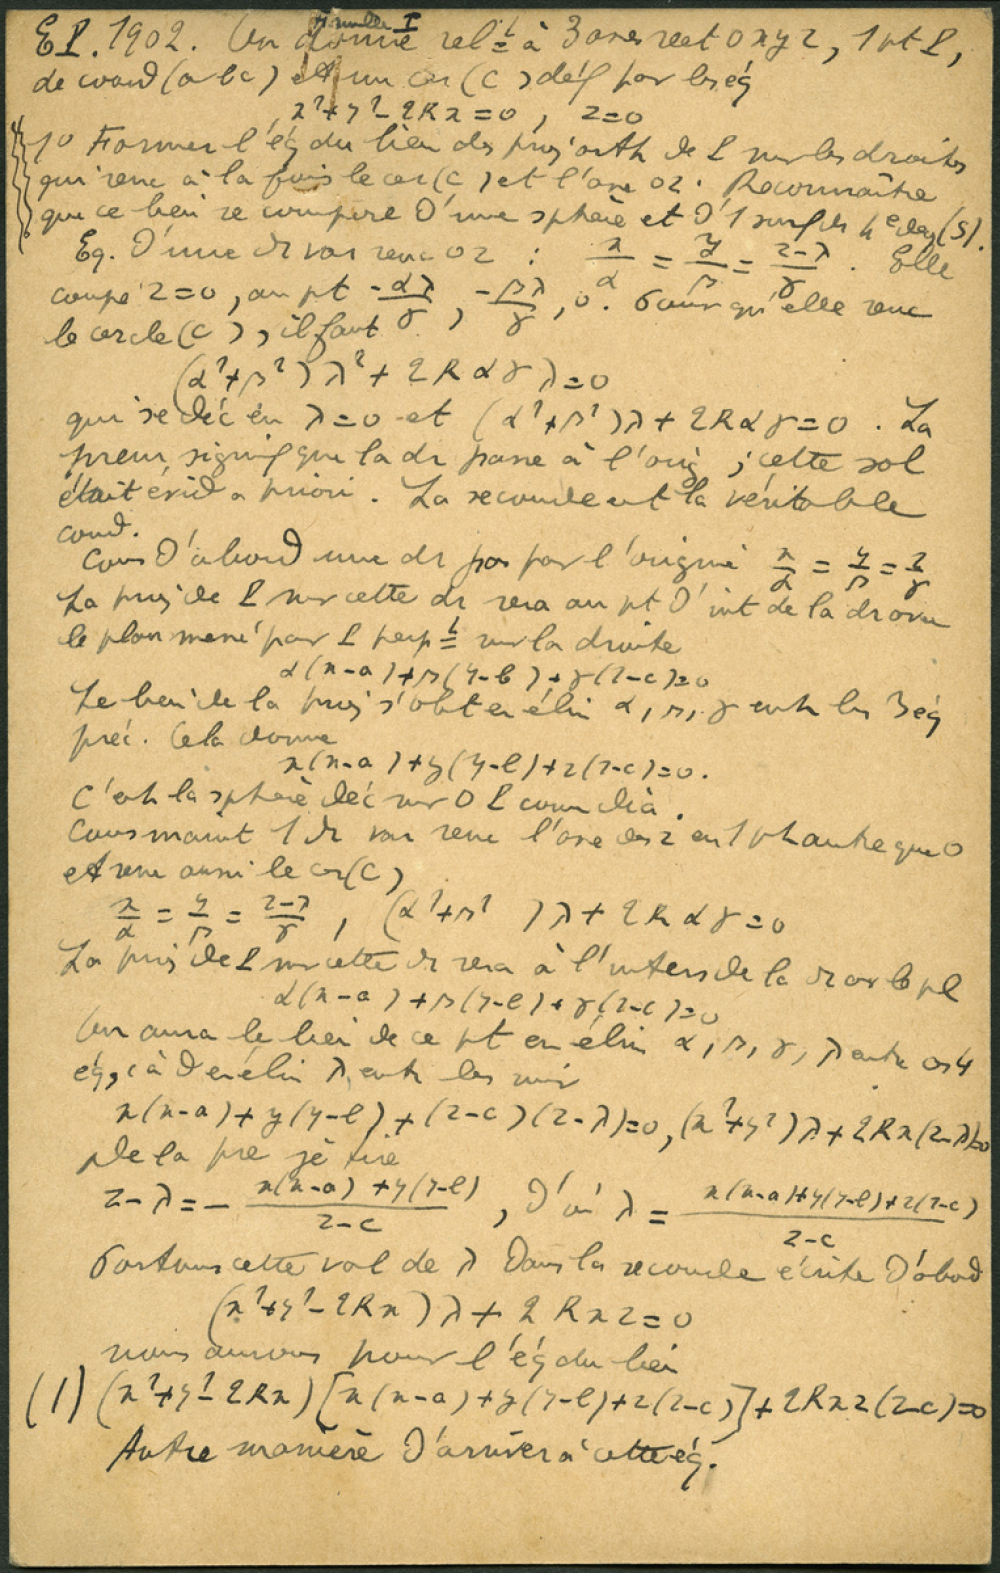 feuille I
E P. 1902. On donne relt à 3 axes rect Oxyz, 1 pt P,
de coord (a b c) et un cer (C) déf par les ég
x²+y²-2Rx=0, z=0
1º Former l'ég du lieu des proj orth de P sur les droites
qui renc à la fois le cer (C) et l'axe oz. Reconnaître
que ce lieu se compose d'une sphère et d'1 surf du 4e deg (S).
Eq. d'une dr var renc oz : x/α = y/β = z-λ/γ. Elle
coupe z=0, au pt -αλ/γ, -βλ/γ, 0. Pour qu'elle renc
le cercle (C), il faut
(α²+β²)λ²+2Rαγλ=0
qui se déc en λ=0 et (α²+β²)λ+2Rαγ=0. La
prem signif que la dr passe à l'orig ; cette sol
était évid a priori. La seconde est la véritable
cond.
Cons d'abord une dr pas par l'origine x/α = y/β = z/γ
La proj de P sur cette dr sera au pt d'int de la dr avec
le plan mené par P perpt sur la droite
α(x-a)+β(y-b)+γ(z-c)=0
Le lieu de la proj s'obt en élim α, β, γ entr les 3 ég
préc. Cela donne
x(x-a)+y(y-b)+z(z-c)=0.
C'est la sphère déc sur OP comm dia.
Cons maint 1 dr var renc l'axe des z en 1 pt autre que O
et renc aussi le cer (C)
x/α = y/β = z-λ/γ, (α²+β²)λ+2Rαγ=0
La proj de P sur cette dr sera à l'inters de la dr av le pl
α(x-a)+β(y-b)+γ(z-c)=0
On aura le lieu de ce pt en élim α, β, γ, λ entre ces 4
ég, c à d en élim λ entr les suiv
x(x-a)+y(y-b)+(z-c)(z-λ)=0, (x²+y²)λ+2Rx(z-λ)=0
De la pre je tire
z-λ=- x(x-a)+y(y-b)/z-c, d'où λ = x(x-a)+y(y-b)+z(z-c)/z-c
Portons cette val de λ dans la seconde écrite d'abord
(x²+y²-2Rx)λ+2Rxz=0
nous aurons pour l'ég du lieu
(1) (x²+y²-2Rx)[x(x-a)+y(y-b)+z(z-c)]+2Rxz(z-c)=0
Autre manière d'arriver à cette ég.